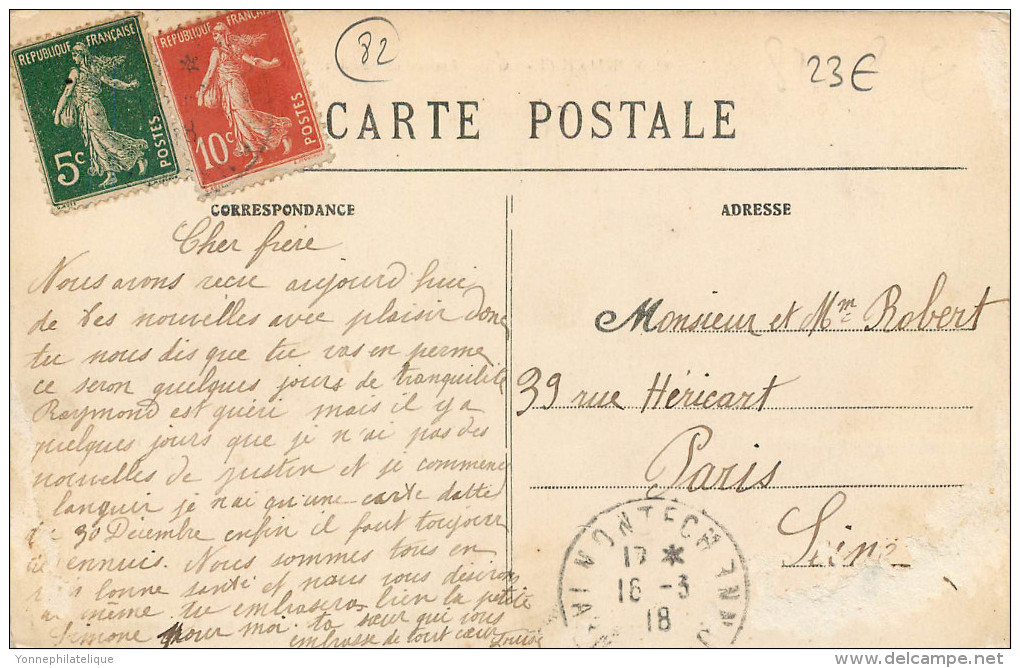 RÉPUBLIQUE FRANÇAISE
5c
POSTES
RÉPUBLIQUE FRANÇAISE
10c
POSTES
82
23€
CARTE POSTALE
CORRESPONDANCE
ADRESSE
Cher frere
Nous avons recu aujourd hui
de tes nouvelles avec plaisir donc
tu nous dis que tu vas en perme
ce seron quelques jours de tranquilité
Raymond est guéri mais il y a
quelques jours que je n'ai pas des
nouvelles de justin et je commence
languir je n'ai qu'une carte datté
30 Décembre enfin il faut toujours
ennuis. Nous sommes tous en
bonne santé et nous vous désirons
même tu embrasera bien la petite
Simone pour moi ta sœur qui vous
embrasse de tout cœur Louise
Monsieur et Mme Robert
39 rue Héricart
Paris
Seine
MONTECH
17 *
16 - 3
18
Yonnephilatelique
delcampe.net